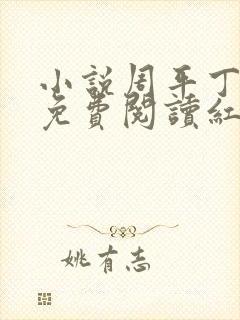 小説周平丁
免費閱讀紅
姚有志